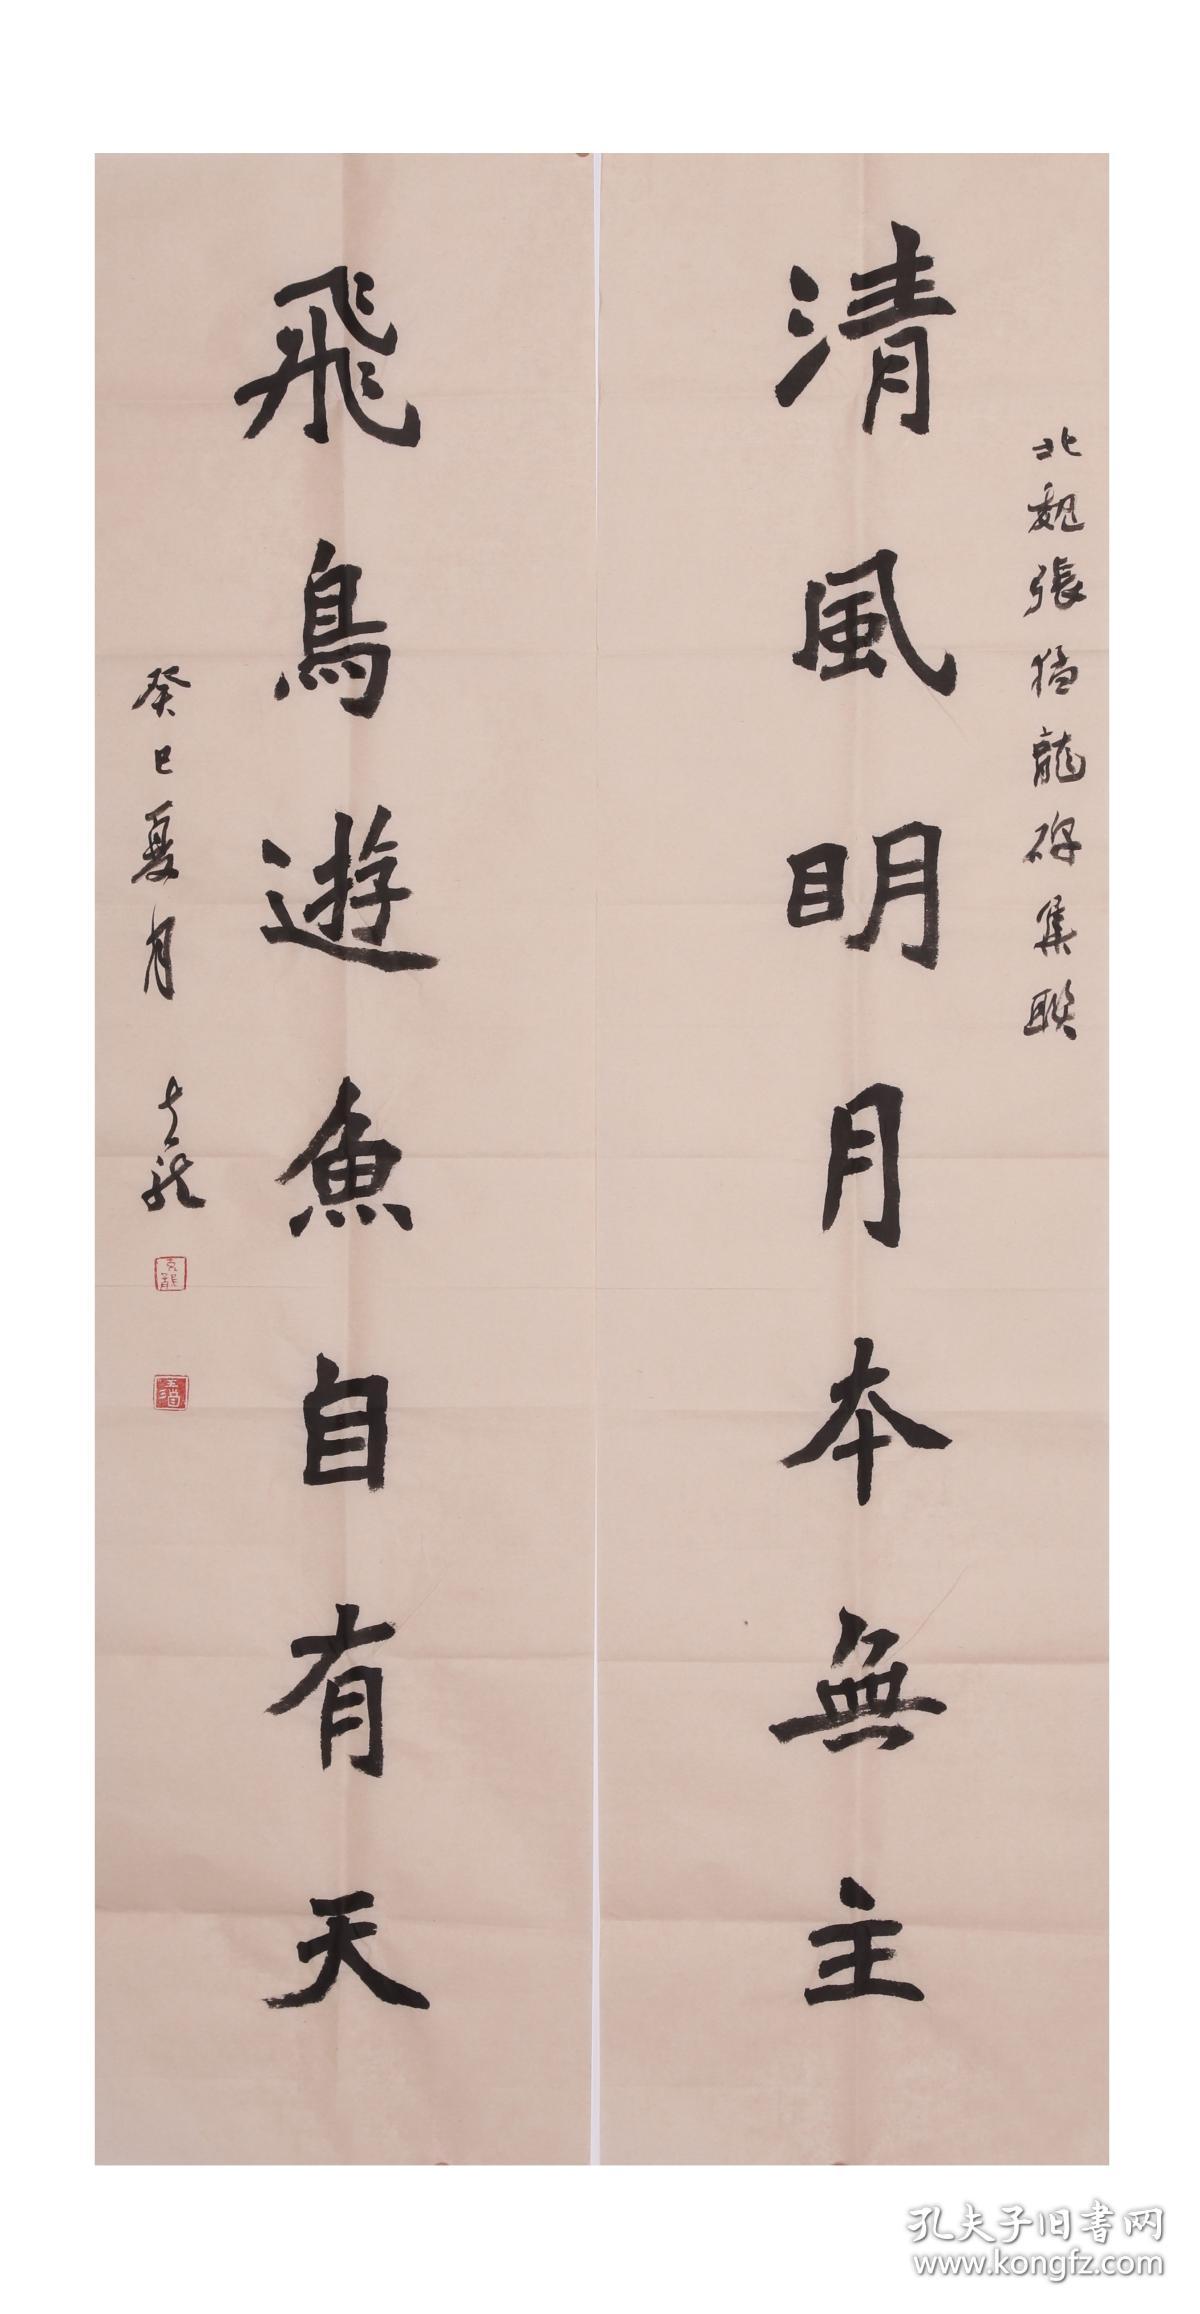 北魏張猛龍碑集聯
清風明月本無主
飛鳥遊魚自有天
癸巳夏月
孔夫子旧书网
www.kongfz.com